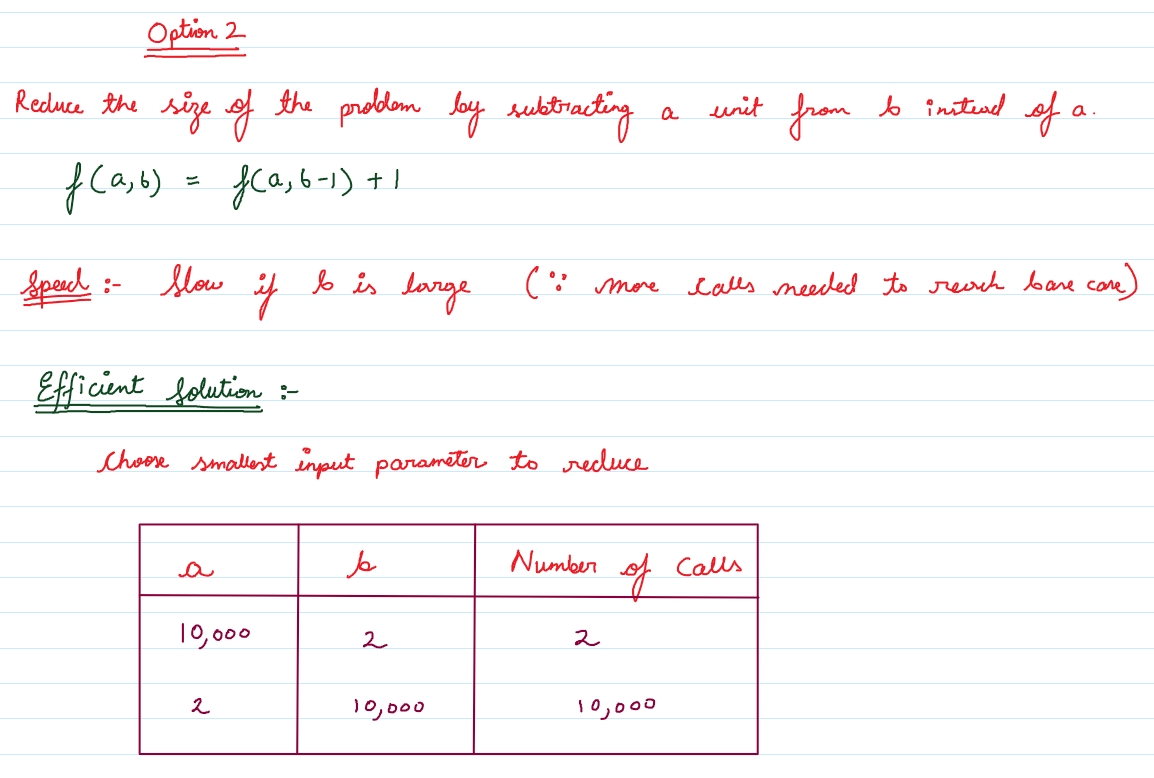 Option 2
Reduce the size of the problem by subtracting a unit from b instead of a.
f(a,b) = f(a, b-1) + 1
Speed :- Slow if b is large (∵ more calls needed to reach base case)
Efficient Solution :-
Choose smallest input parameter to reduce
a b Number of Calls
10,000 2 2
2 10,000 10,000